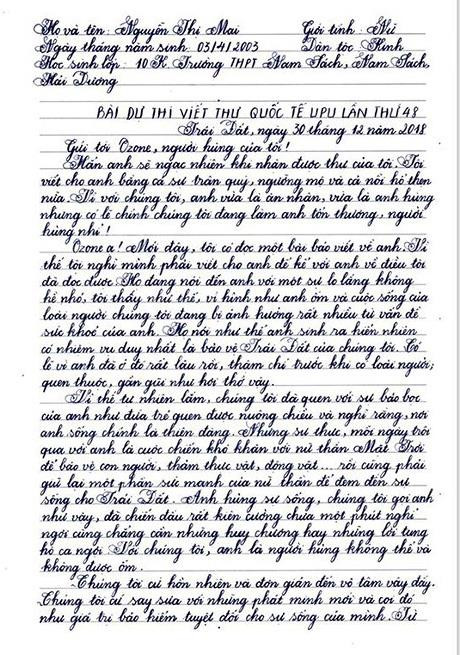 Họ và tên: Nguyễn Thị Mai Giới tính: Nữ
Ngày tháng năm sinh: 03/4/2003 Dân tộc Kinh
Học sinh lớp: 10K Trường THPT Nam Sách, Nam Sách,
Hải Dương
BÀI DỰ THI VIẾT THƯ QUỐC TẾ UPU LẦN THỨ 48
Trái Đất, ngày 30 tháng 12 năm 2018
Gửi tới Ozone, người hùng của tôi!
Hẳn anh sẽ ngạc nhiên khi nhận được thư của tôi. Tôi
viết cho anh bằng cả sự trân quý, ngưỡng mộ và cả nỗi hổ thẹn
nữa. Vì với chúng tôi, anh vừa là ân nhân, vừa là anh hùng
nhưng có lẽ chính chúng tôi đang làm anh tổn thương, người
hùng nhỉ!
Ozone ạ! Mới đây, tôi có đọc một bài báo viết về anh. Vì
thế tôi nghĩ mình phải viết cho anh để kể với anh về điều tôi
đã đọc được. Họ đang nói đến anh với một sự lo lắng không
hề nhỏ, tôi thấy như thế, vì hình như anh ốm và cuộc sống của
loài người chúng tôi đang bị ảnh hưởng rất nhiều từ vấn đề
sức khoẻ của anh. Họ nói như thể anh sinh ra hiển nhiên
có nhiệm vụ duy nhất là bảo vệ Trái Đất của chúng tôi. Có
lẽ vì anh đã ở đó rất lâu rồi, thậm chí trước khi có loài người;
quen thuộc, gần gũi như hơi thở vậy.
Vì thế tự nhiên lắm, chúng tôi đã quen với sự bảo bọc
của anh như đứa trẻ quen được nuông chiều và nghĩ rằng, nơi
anh sống chính là thiên đàng. Nhưng sự thực, mỗi ngày trôi
qua với anh là cuộc chiến khó khăn với nữ thần Mặt Trời
để bảo vệ con người, thảm thực vật, động vật... rồi cũng phải
giữ lại một phần sức mạnh của nữ thần để đem đến sự
sống cho Trái Đất. Anh hùng sự sống, chúng tôi gọi anh
như vậy, đã chiến đấu rất kiên cường chưa một phút nghỉ
ngơi cũng chẳng cần những huy chương hay những lời tung
hô ca ngợi. Đối chúng tôi, anh là người hùng không thể và
không được ốm.
Chúng tôi cứ hồn nhiên và đơn giản đến vô tâm vậy đấy.
Chúng tôi cứ say sưa với những phát minh mới và coi đó
như giá trị bảo hiểm tuyệt đối cho sự sống của mình. Từ